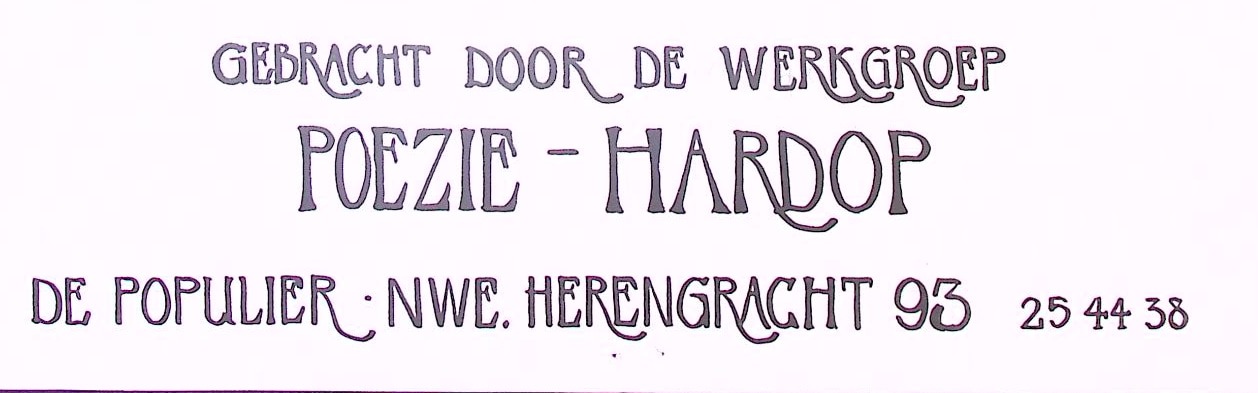 GEBRACHT DOOR DE WERKGROEP
POEZIE - HARDOP
DE POPULIER · NWE. HERENGRACHT 93 25 44 38